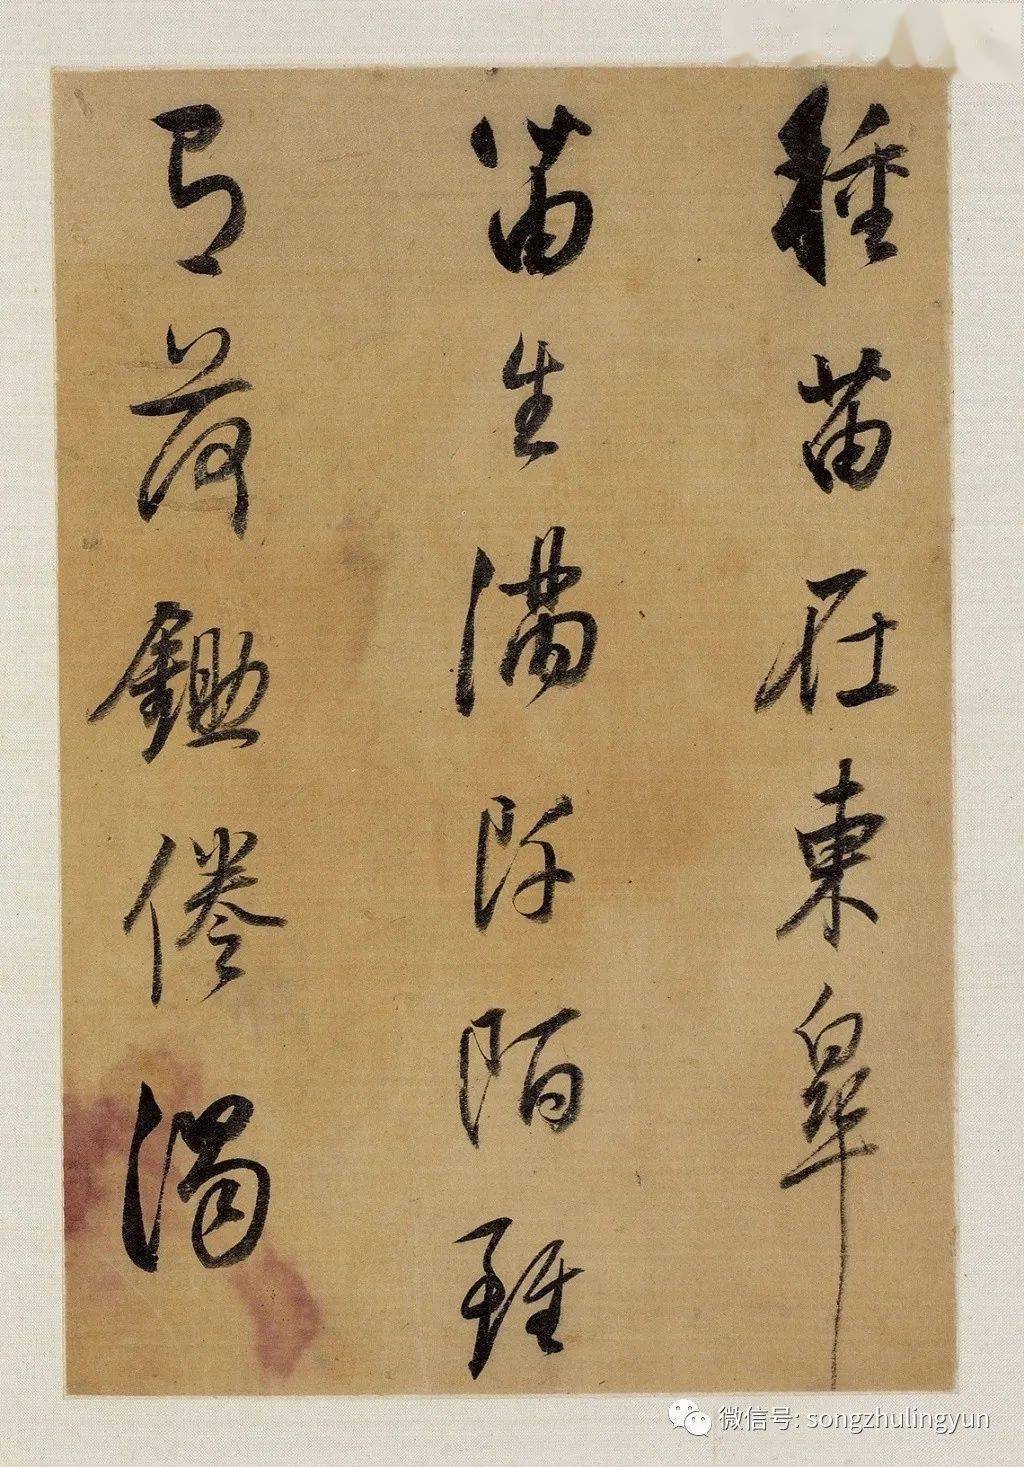 種苗在東皋
苗生滿阡陌雖
有荷鋤倦濁
微信号: songzhulingyun